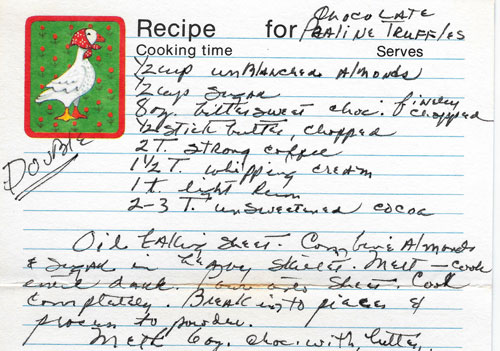 Recipe for Chocolate
Praline Truffles
Cooking time Serves
1/2 cup unblanched Almonds
1/2 cup sugar
8 oz. bittersweet choc. finely chopped
1/2 stick butter, chopped
2 T. strong coffee
1 1/2 T. whipping cream
1 t. light rum
2-3 T. unsweetened cocoa
Double
Oil baking sheet. Combine Almonds
& sugar in heavy skillet. Melt - cook
until dark. Pour onto sheet. Cool
completely. Break into pieces &
process to powder.
Melt 6 oz. choc. with butter,